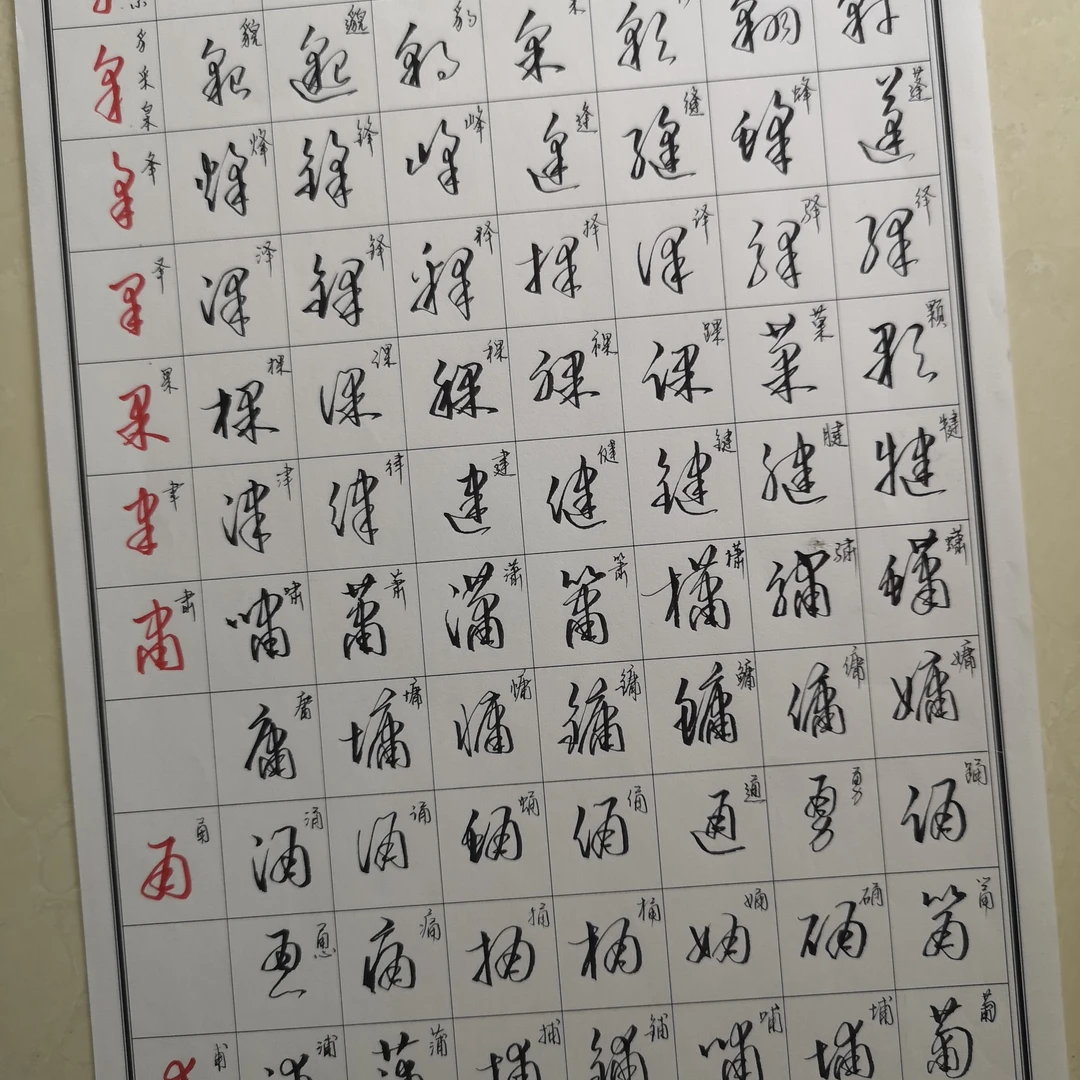 豸 采 臬 貌 邈 豹 采 彩 翱
夆 烽 锋 峰 逢 缝 蜂 蓬
泽 铎 释 择 译 驿 绎
果 棵 课 稞 裸 踝 菓 颗
聿 津 律 建 健 键 腱 犍
肃 啸 萧 潇 箫 蟏
庸 墉 慵 镛 鳙 傭 嫞
甬 涌 诵 蛹 俑 通 勇 踊
恿 痛 捅 桶 硧 筩
甫 浦 蒲 捕 铺 哺 埔 葡